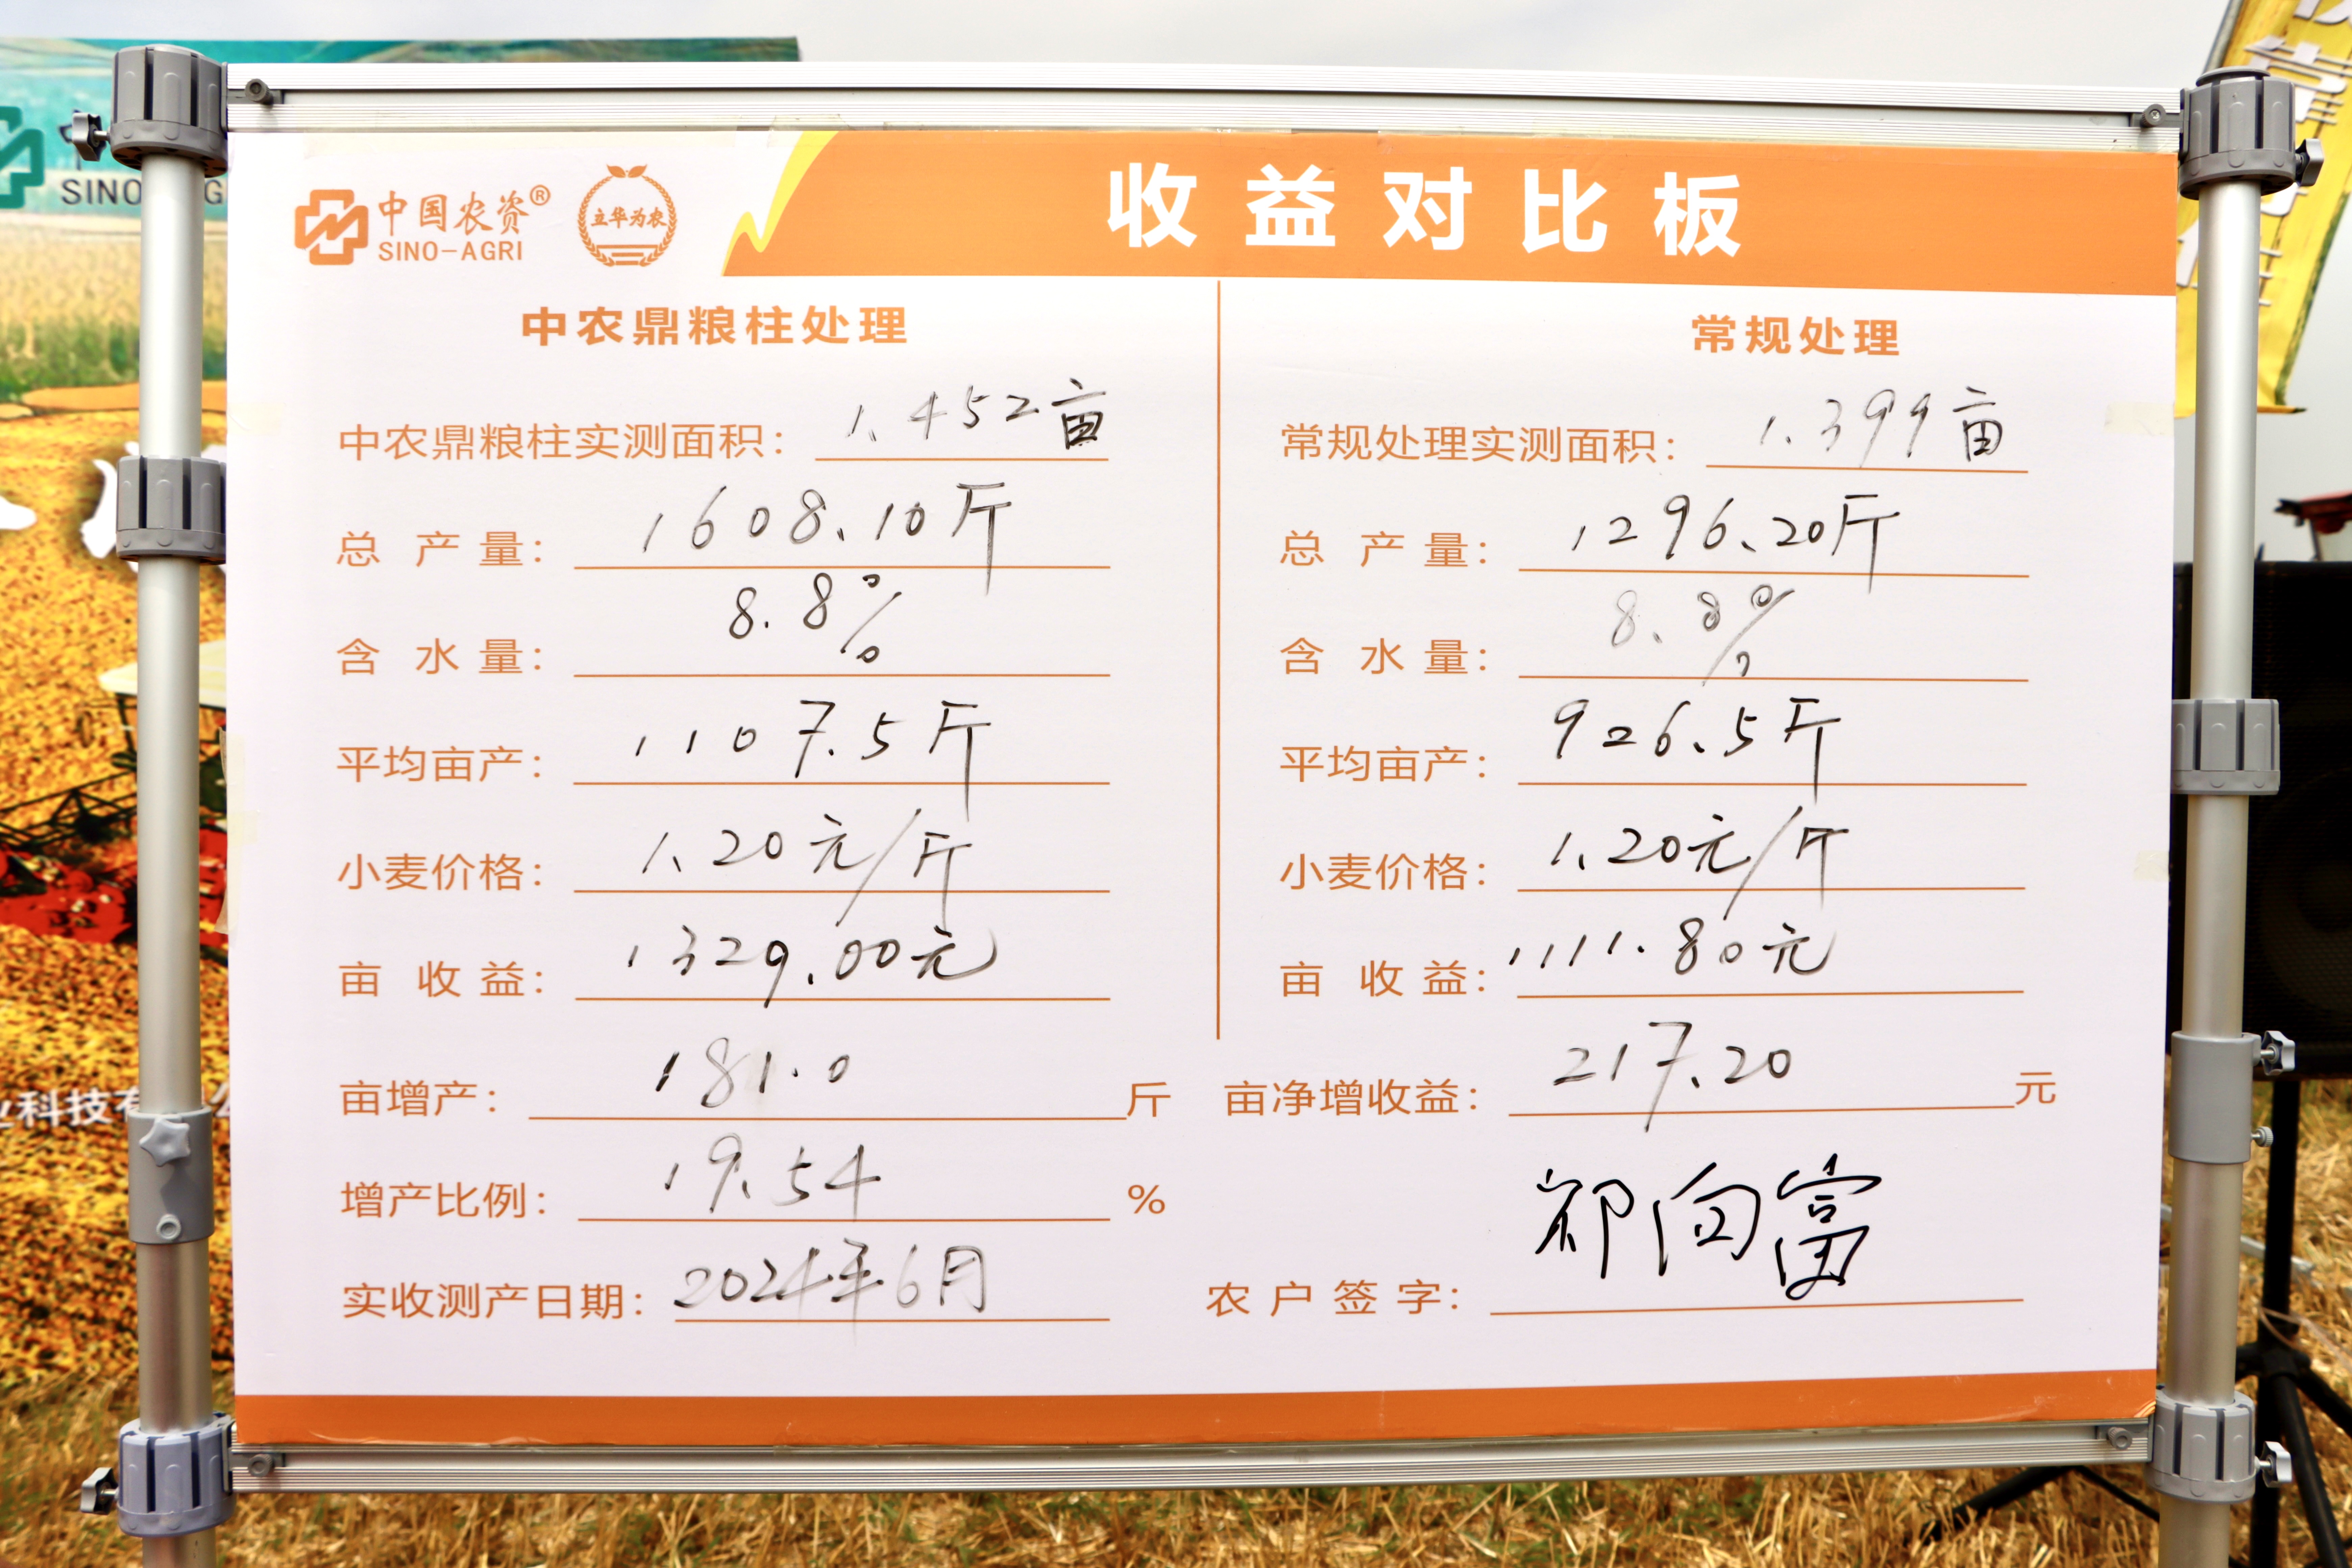 中国农资®
SINO-AGRI
立华为农
收益对比板
中农鼎粮柱处理
中农鼎粮柱实测面积：1.452亩
总产量：1608.10斤
含水量：8.8%
平均亩产：1107.5斤
小麦价格：1.20元/斤
亩收益：1329.00元
常规处理
常规处理实测面积：1.399亩
总产量：1296.20斤
含水量：8.8%
平均亩产：926.5斤
小麦价格：1.20元/斤
亩收益：1111.80元
亩增产：181.0斤
亩净增收益：217.20元
增产比例：19.54%
实收测产日期：2024年6月
农户签字：祁向富
SINO
业科技有